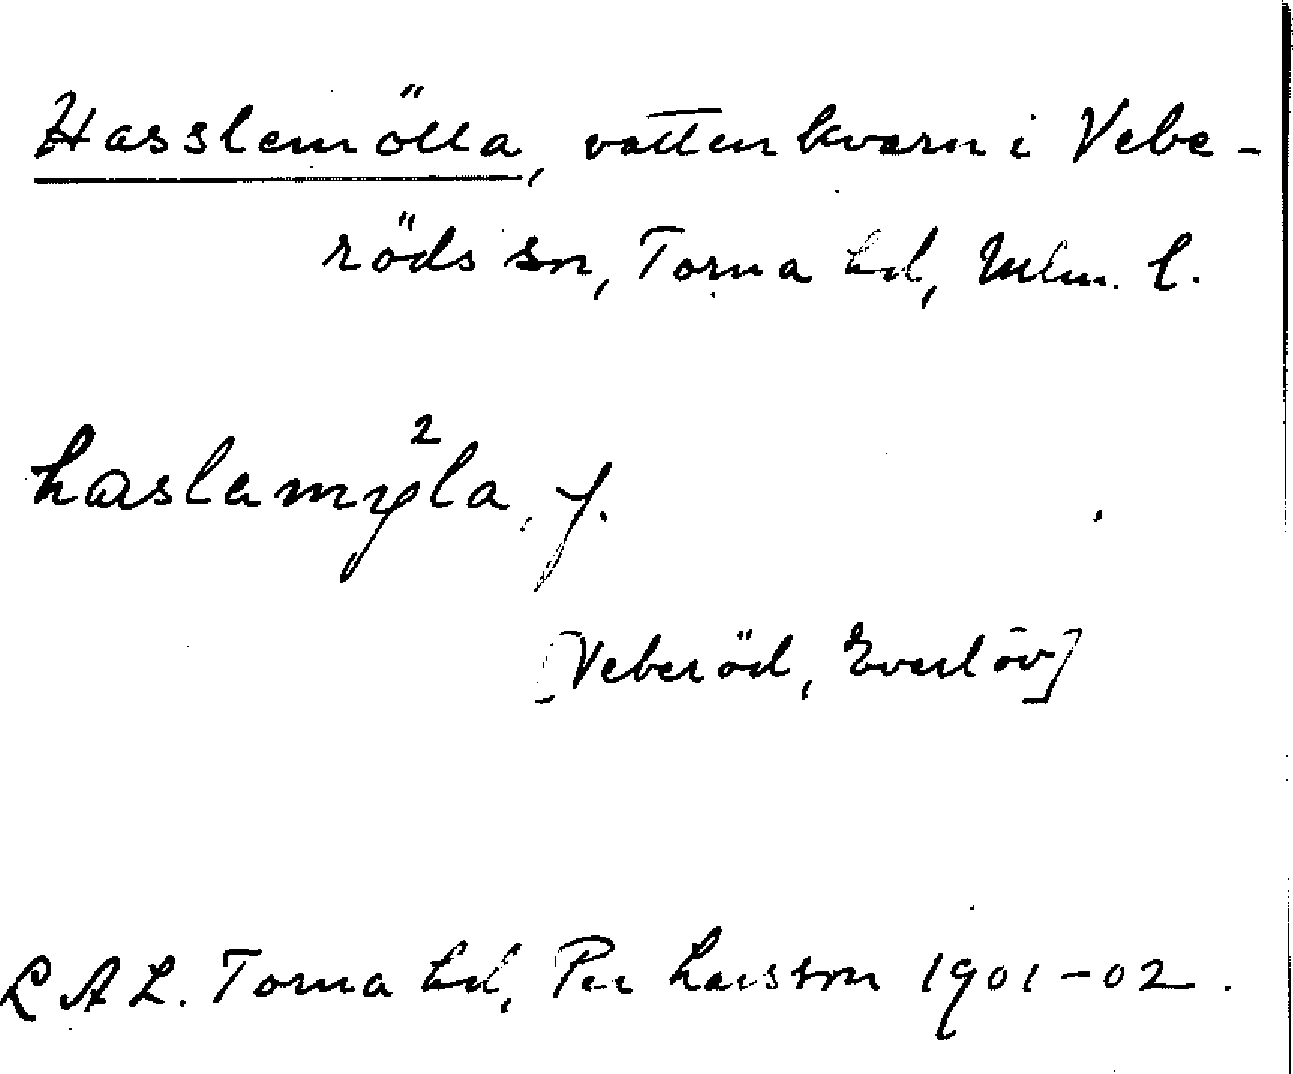 Hasslemölla, vattenkvarn i Vebe-
röds sn, Torna hd, Mlm. l.
haslamyla, f.
2
[Veberöd, Everlöv]
L A L. Torna hd, Per Larsson 1901-02.